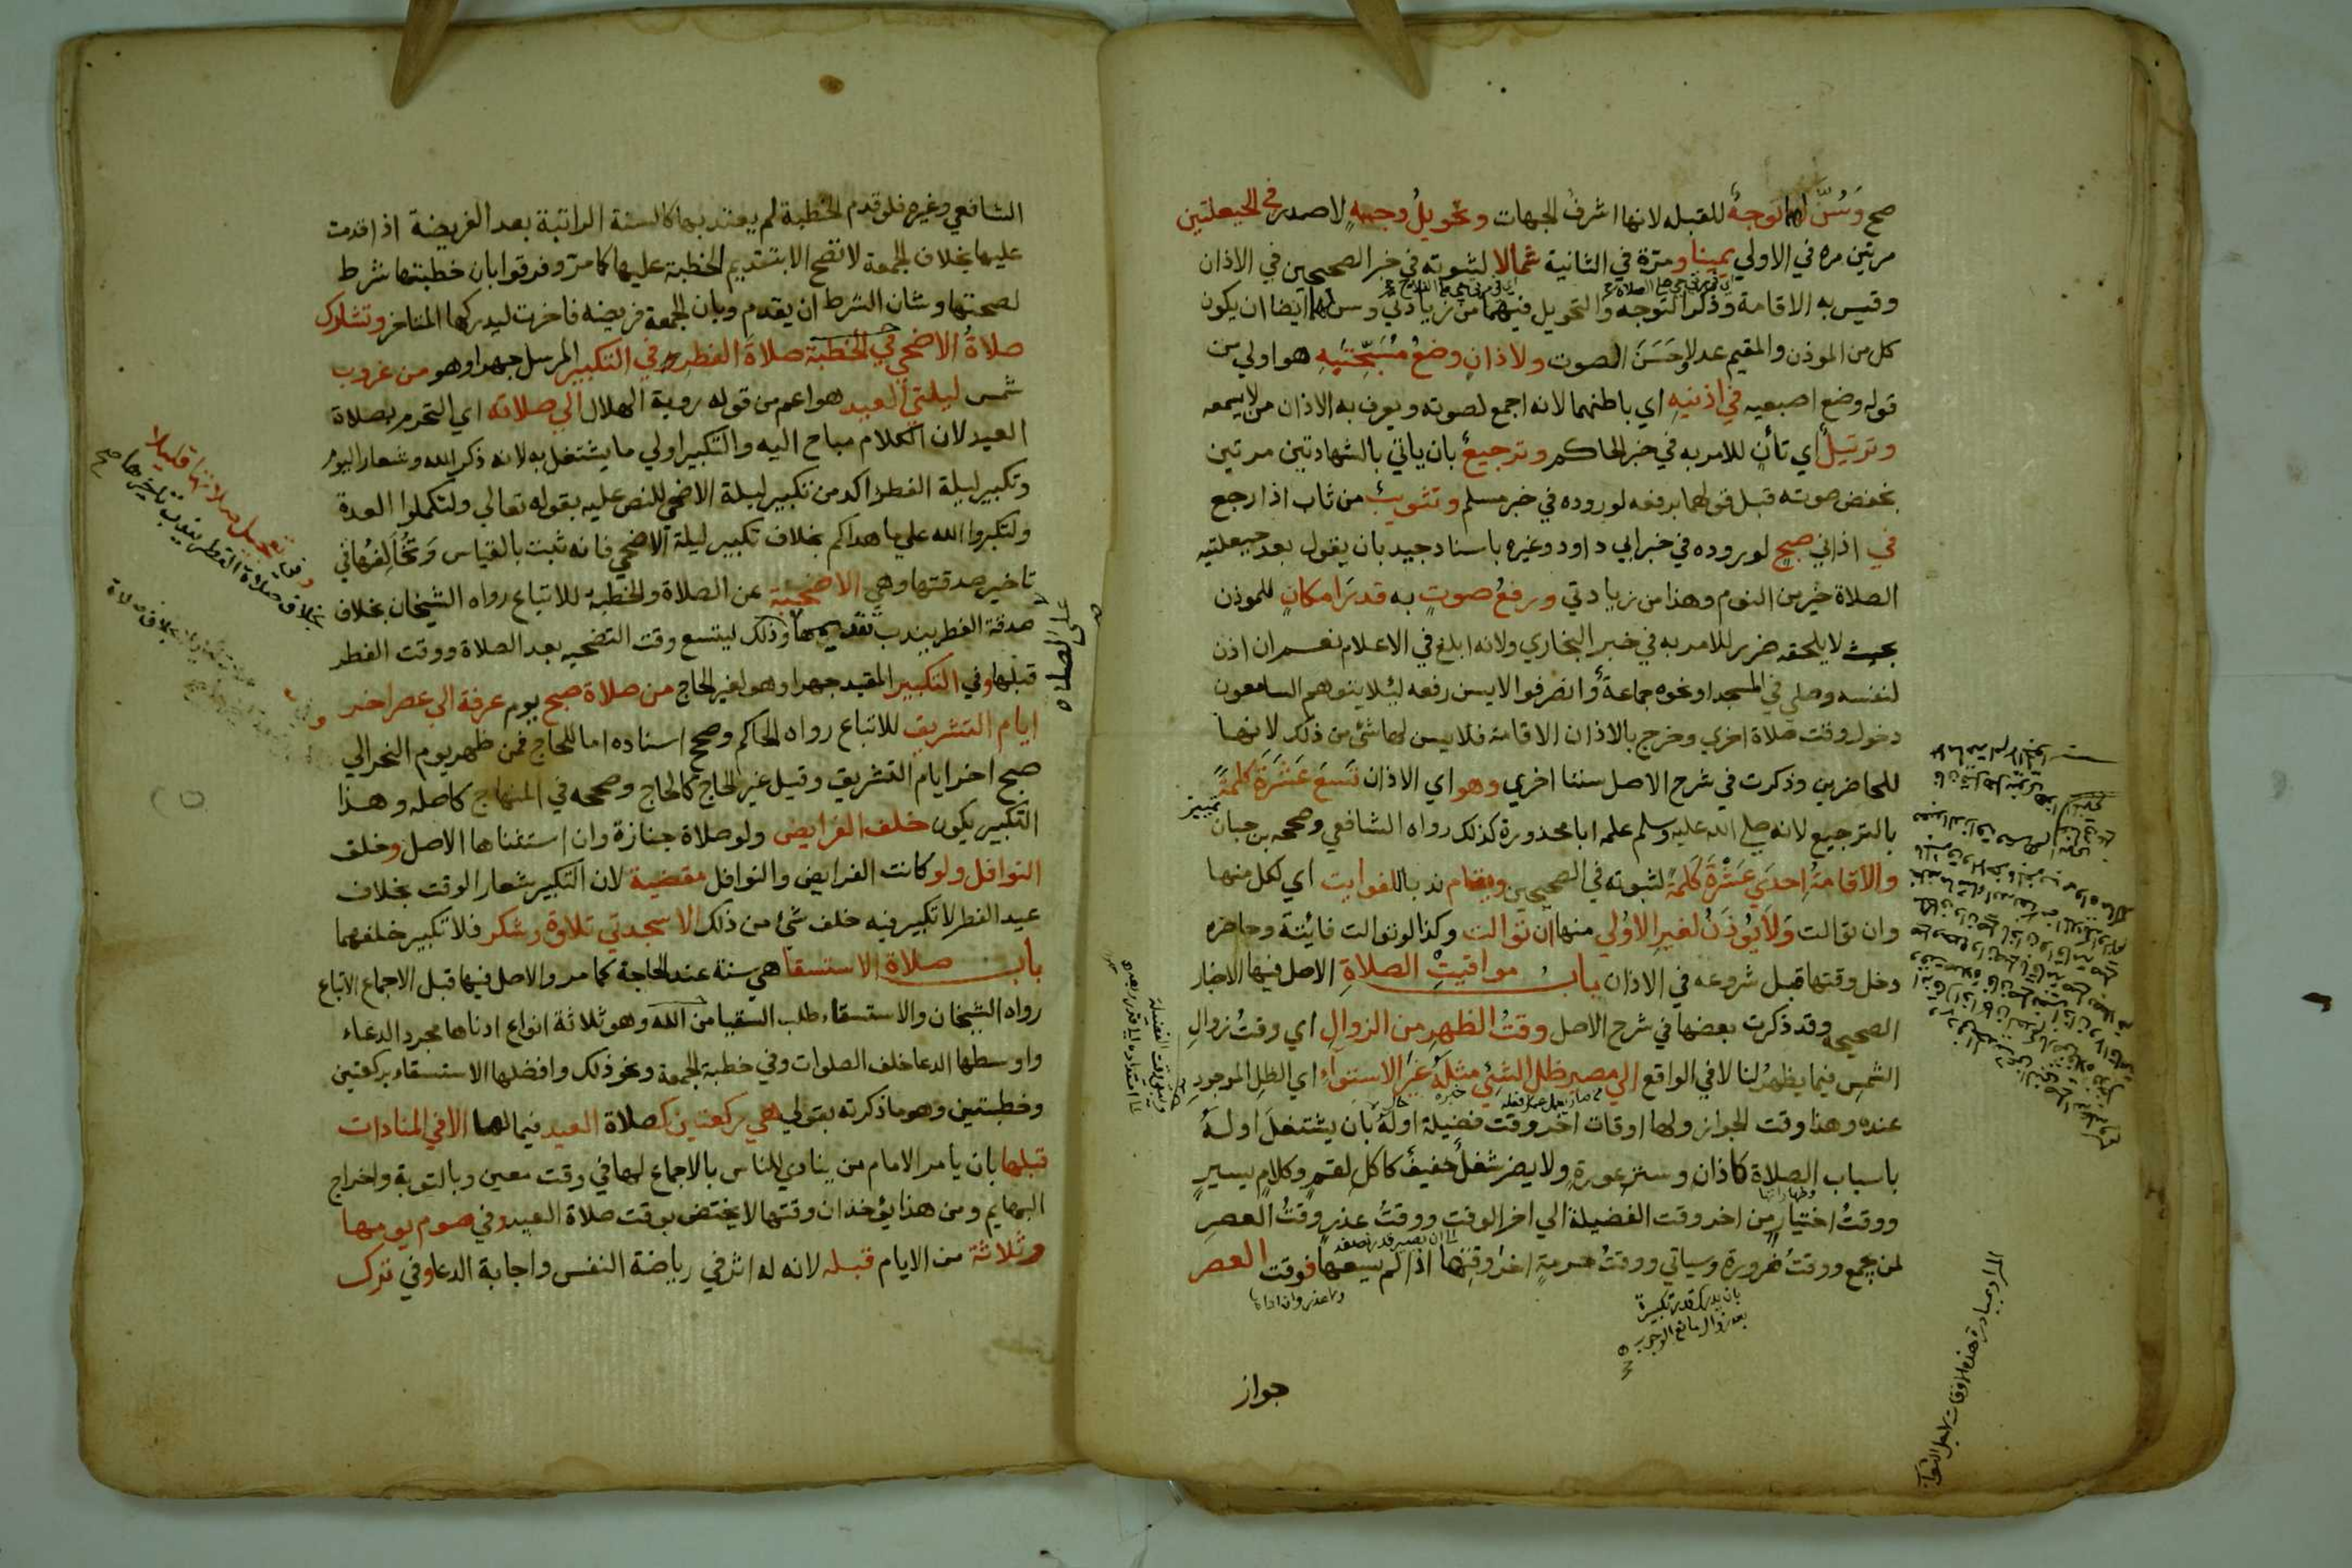 صح وسُنَّ لهما توجهٌ للقبله لانها اشرف الجهات وتحويلُ وجههٍ لا صدر في الحيعلتين
مرتين مره في الاولي يمينا ومرّة في الثانية شمالا لثبوته في خبر الصحيحين في الاذان
وقيس به الاقامة وذكر التوجه والتحويل فيهما من زيادتي وسن لهما ايضا ان يكون
كل من الموذن والمقيم عدلا وحَسَنَ الصوت ولاذانٍ وضعُ مُسَبّحتَيهِ هو اولي من
قوله وضع اصبعيه في اذنيهِ اي باطنهما لانه اجمع لصوته ويعرف به الاذان من لا يسمعه
وترتيلٌ اي تأنٍ للامر به في خبر الحاكم وترجيعٌ بان ياتي بالشهادتين مرتين
بخفض صوته قبل قولهما برفعه لوروده في خبر مسلم وتثويبٌ من ثاب اذا رجع
في اذاني صبحٍ لوروده في خبر ابي داود وغيره باسناد جيد بان يقول بعد حيعلتيه
الصلاة خير من النوم وهذا من زيادتي ورفعُ صوتٍ به قدرَ امكانٍ للموذن
بحيث لا يلحقه ضرر للامر به في خبر البخاري ولانه ابلغ في الاعلام نعم ان اذن
لنفسه وصلي في المسجد او نحوه جماعةٌ وانصرفوا لا يسن رفعه ليئلا يتوهم السامعون
دخول وقت صلاة اخري وخرج بالاذان الاقامة فلا يسن لها شئ من ذلك لانها
للحاضرين وذكرت في شرح الاصل سننا اخري وهو اي الاذان تسعَ عَشْرَةَ كلمةً
تمييز
بالترجيع لانه صلي الله عليه وسلم علمه ابا محذورة كذلك رواه الشافعي وصححه بن حبان
والاقامةُ احدَي عَشْرَةَ كَلمةً لثبوته في الصحيحين ويقام ندبا للفوايت اي لكل منها
وان توالت وَلَا يُوذَنُ لغيرِ الاوُلي منها ان توالت وكذا لو توالت فايئتة وحاضره
دخل وقتها قبل شروعه في الاذان باب مواقيتِ الصلاةِ الاصل فيها الاخبار
الصحيحه وقد ذكرت بعضها في شرح الاصل وقتُ الظهرِ من الزوالِ اي وقتُ زوالِ
الشمسِ فيما يظهرُ لنا لا في الواقع الي مصيرِ ظلِ الشئِي مثلَهُ غيرَ الاستواءِ اي الظل الموجودِ
عنده وهذا وقت الجواز ولها اوقات اخر وقت فضيلة اولهُ بان يشتغلَ اولهُ
باسباب الصلاة كاذان وسترِ عورةٍ ولا يضر شغلٌ خفيفٌ كاكل لقمٍ وكلامٍ يسيرٍ
ووقتُ اختيارٍ من اخر وقت الفضيلة الي اخر الوقتِ ووقتُ عذرٍ وقتُ العصرِ
لمن يجمع ووقتُ ضرورة وسياتي ووقتُ حرمةٍ اخرُ وقتها اذا لم يسعها فوقت العصر
الي ان يصير قدر نصفه
بان يدرك قدر تكبيرة
بعد زوال مانع الوجوب
المراد بمبادرة هذه الاوقات لاجل الثواب
جواز
الشافعي وغيره فلو قدم الخطبة لم يعتد بها كالسنة الراتبة بعد الفريضة اذا قدمت
عليها بخلاف الجمعة لا تصح الا بتقديم الخطبة عليها كما مرّ وفرقوا بان خطبتها شرط
لصحتها وشان الشرط ان يقدم وبان الجمعة فريضه فاخرت ليدركها المتاخر وتشارك
صلاةُ الاضحي في الخطبة صلاةَ الفطر وفي التكبير المرسل جهرا وهو من غروب
شمس ليلتي العيد هو اعم من قوله روية الهلال الي صلاته اي التحرم بصلاة
العيد لان الكلام مباح اليه والتكبير اولي ما يشتغل به لانه ذكر الله وشعار اليوم
وتكبير ليلة الفطر اكد من تكبير ليلة الاضحي للنص عليه بقوله تعالي ولتكملوا العدة
ولتكبروا الله علي ما هداكم بخلاف تكبير ليلة الاضحي فانه ثبت بالقياس وَتُخَالِفُها في
تاخير صدقتها وهي الاضحيّة عن الصلاة والخطبة للاتباع رواه الشيخان بخلاف
صدقة الفطر يندب تقديمها وذلك ليتسع وقت التضحيه بعد الصلاة ووقت الفطر
علي الصلاه
قبلها وفي التكبير المقيد جهرا وهو لغير الحاج من صلاة صبح يوم عرفة الي عصر اخر
ايام التشريق للاتباع رواه الحاكم وصحح اسناده اما للحاج فمن ظهر يوم النحر الي
صبح اخر ايام التشريق وقيل غير الحاج كالحاج وصححه في المنهاج كاصله وهذا
التكبير يكون خلف الفرايض ولو صلاة جنازة وان استثناها الاصل وخلف
النوافل ولو كانت الفرايض والنوافل مقضية لان التكبير شعار الوقت بخلاف
عيد الفطر لا تكبير فيه خلف شئ من ذلك الا سجدتي تلاوة وشكر فلا تكبير خلفهما
باب صلاة الاستسقا هي سنة عند الحاجة كما مر والاصل فيها قبل الاجماع الاتباع
رواه الشيخان والاستسقاء طلب السقيا من الله وهو ثلاثة انواع ادناها مجرد الدعاء
واوسطها الدعا خلف الصلوات وفي خطبة الجمعة ونحو ذلك وافضلها الاستسقاء بركعتين
وخطبتين وهو ما ذكرته بقولي هي ركعتين كصلاة العيد فيما لها الا في المنادات
قبلها بان يامر الامام من ينادي للناس بالاجماع لها في وقت معين وبالتوبة واخراج
البهايم ومن هذا يؤخذ ان وقتها لا يختص بوقت صلاة العيد وفي صوم يومها
وثلاثة من الايام قبله لانه له اثر في رياضة النفس واجابة الدعا وفي ترك